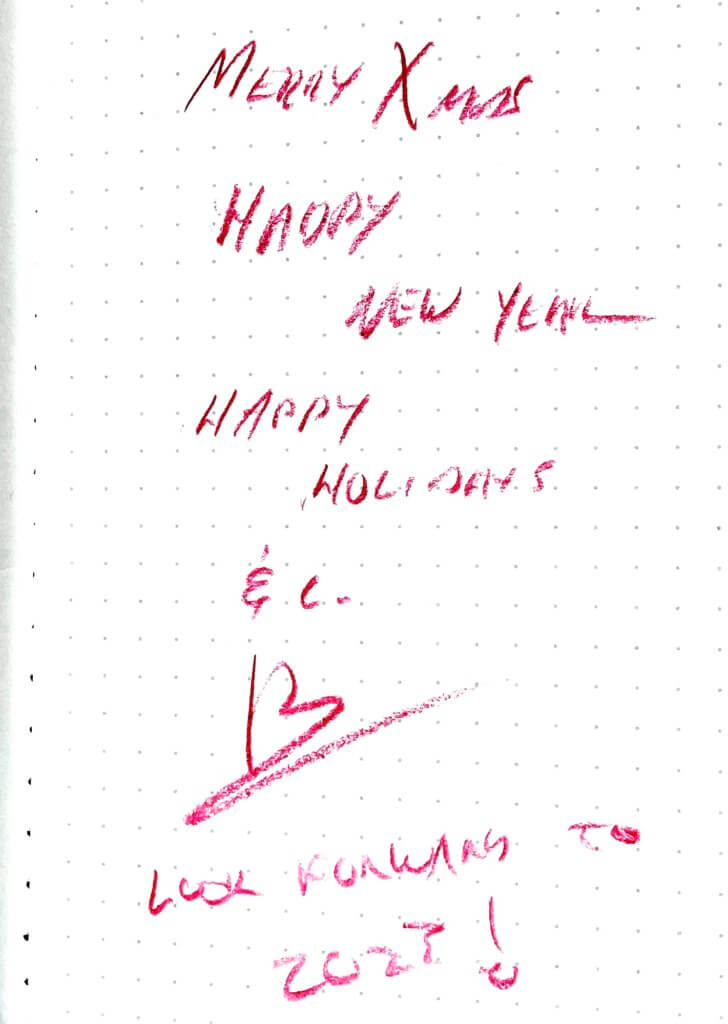 MERRY XMAS
HAPPY
NEW YEAR
HAPPY
HOLIDAYS
& c.
B
LOOK FORWARD TO
2023!